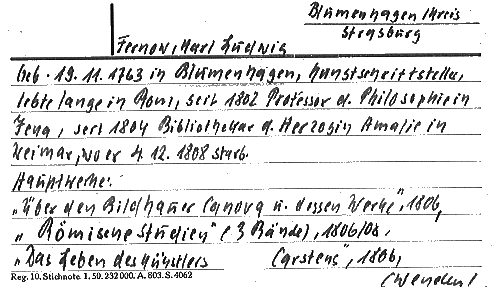 Blumenhagen Kreis
Strasburg
Fernow, Karl Ludwig
Geb. 19.11.1763 in Blumenhagen, Kunstschriftsteller,
lebte lange in Rom, seit 1802 Professor d. Philosophie in
Jena, seit 1804 Bibliothekar d. Herzogin Amalie in
Weimar, wo er 4.12.1808 starb.
Hauptwerke:
„Über den Bildhauer Canova u. dessen Werke", 1806,
„Römische Studien" (3 Bände), 1806/08.
„Das Leben des Künstlers Carstens", 1806,
Reg. 10. Stichnote. 1. 50. 232000. A. 803. S. 4062
(Wenden!